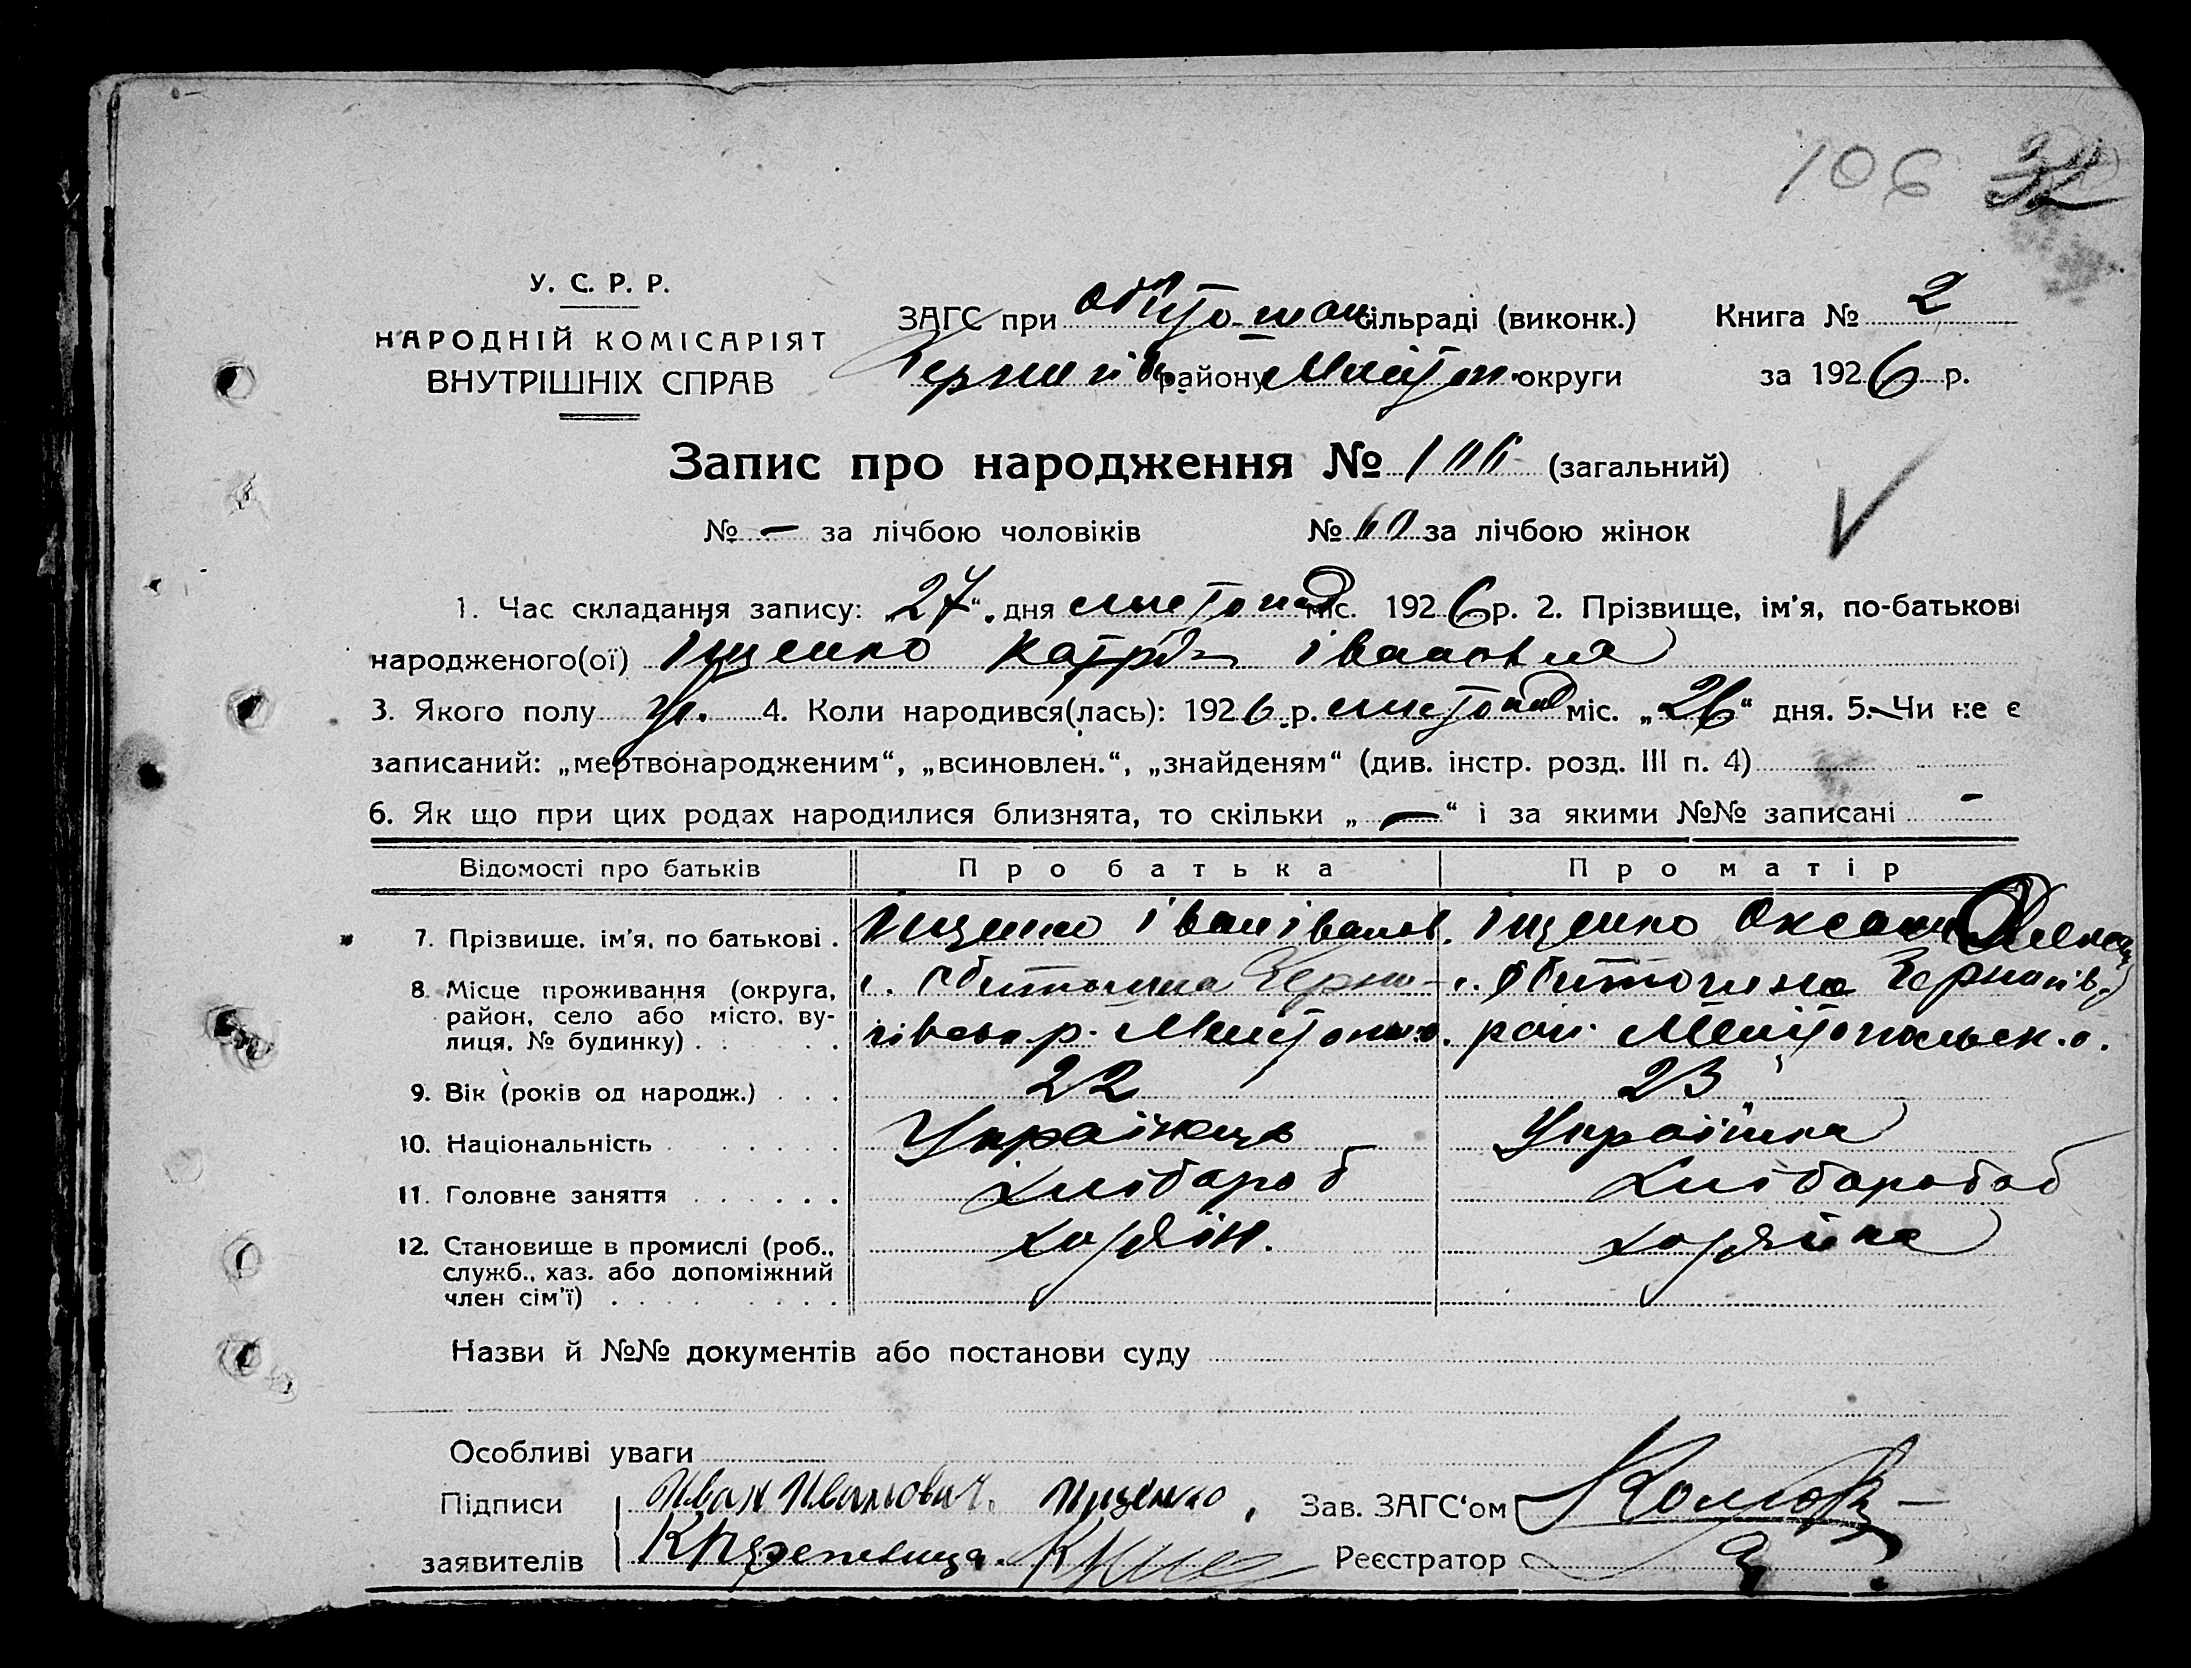 106 32
У. С. Р. Р.
НАРОДНІЙ КОМІСАРІЯТ
ВНУТРІШНІХ СПРАВ
ЗАГС при Обіточан сільраді (виконк.) Книга № 2
Черників району Мелітоп. округи за 1926 р.
Запис про народження № 106 (загальний)
№ — за лічбою чоловіків № 60 за лічбою жінок
1. Час складання запису: „27“ дня листопад міс. 1926 р. 2. Прізвище, ім'я, по-батькові
народженого(ої) Іщенко Катря Івановна
3. Якого полу ж. 4. Коли народився(лась): 1926 р. листопад міс. „26“ дня. 5. Чи не є
записаний: „мертвонародженим“, „всиновлен.“, „знайденям“ (див. інстр. розд. III п. 4)
6. Як що при цих родах народилися близнята, то скільки „—“ і за якими №№ записані —
Відомості про батьків Про батька Про матір
7. Прізвище, ім'я, по батькові . Іщенко Іван Іванов. Іщенко Оксана
8. Місце проживання (округа, район, село або місто, вулиця, № будинку) с. Обиточина Черниківсько р. Мелітоп. о. с. Обиточина Черників. рай. Мелітопольськ. о.
9. Вік (років од народж.) . . . 22 23
10. Національність Українець Українка
11. Головне заняття Хлібороб Хлібороб
12. Становище в промислі (роб., служб., хаз. або допоміжний член сім'ї) хазяїн. хазяйка
Назви й №№ документів або постанови суду
Особливі уваги
Підписи Иван Иванович. Ищенко, Зав. ЗАГС'ом
заявителів Реєстратор